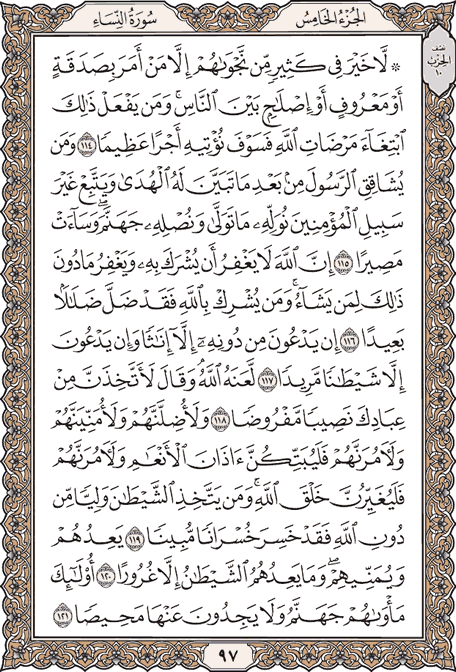 الجُزْءُ الخَامِسُ
سُورَةُ النِّسَاءِ
نصف
الحزب
١٠
۞ لَّا خَيْرَ فِي كَثِيرٍ مِّن نَّجْوَىٰهُمْ إِلَّا مَنْ أَمَرَ بِصَدَقَةٍ
أَوْ مَعْرُوفٍ أَوْ إِصْلَٰحٍ بَيْنَ ٱلنَّاسِۚ وَمَن يَفْعَلْ ذَٰلِكَ
ٱبْتِغَآءَ مَرْضَاتِ ٱللَّهِ فَسَوْفَ نُؤْتِيهِ أَجْرًا عَظِيمًا ١١٤ وَمَن
يُشَاقِقِ ٱلرَّسُولَ مِنۢ بَعْدِ مَا تَبَيَّنَ لَهُ ٱلْهُدَىٰ وَيَتَّبِعْ غَيْرَ
سَبِيلِ ٱلْمُؤْمِنِينَ نُوَلِّهِۦ مَا تَوَلَّىٰ وَنُصْلِهِۦ جَهَنَّمَۖ وَسَآءَتْ
مَصِيرًا ١١٥ إِنَّ ٱللَّهَ لَا يَغْفِرُ أَن يُشْرَكَ بِهِۦ وَيَغْفِرُ مَا دُونَ
ذَٰلِكَ لِمَن يَشَآءُۚ وَمَن يُشْرِكْ بِٱللَّهِ فَقَدْ ضَلَّ ضَلَٰلًۢا
بَعِيدًا ١١٦ إِن يَدْعُونَ مِن دُونِهِۦٓ إِلَّآ إِنَٰثًا وَإِن يَدْعُونَ
إِلَّا شَيْطَٰنًا مَّرِيدًا ١١٧ لَّعَنَهُ ٱللَّهُۘ وَقَالَ لَأَتَّخِذَنَّ مِنْ
عِبَادِكَ نَصِيبًا مَّفْرُوضًا ١١٨ وَلَأُضِلَّنَّهُمْ وَلَأُمَنِّيَنَّهُمْ
وَلَءَامُرَنَّهُمْ فَلَيُبَتِّكُنَّ ءَاذَانَ ٱلْأَنْعَٰمِ وَلَءَامُرَنَّهُمْ
فَلَيُغَيِّرُنَّ خَلْقَ ٱللَّهِۚ وَمَن يَتَّخِذِ ٱلشَّيْطَٰنَ وَلِيًّا مِّن
دُونِ ٱللَّهِ فَقَدْ خَسِرَ خُسْرَانًا مُّبِينًا ١١٩ يَعِدُهُمْ
وَيُمَنِّيهِمْۖ وَمَا يَعِدُهُمُ ٱلشَّيْطَٰنُ إِلَّا غُرُورًا ١٢٠ أُو۟لَٰٓئِكَ
مَأْوَىٰهُمْ جَهَنَّمُ وَلَا يَجِدُونَ عَنْهَا مَحِيصًا ١٢١
٩٧